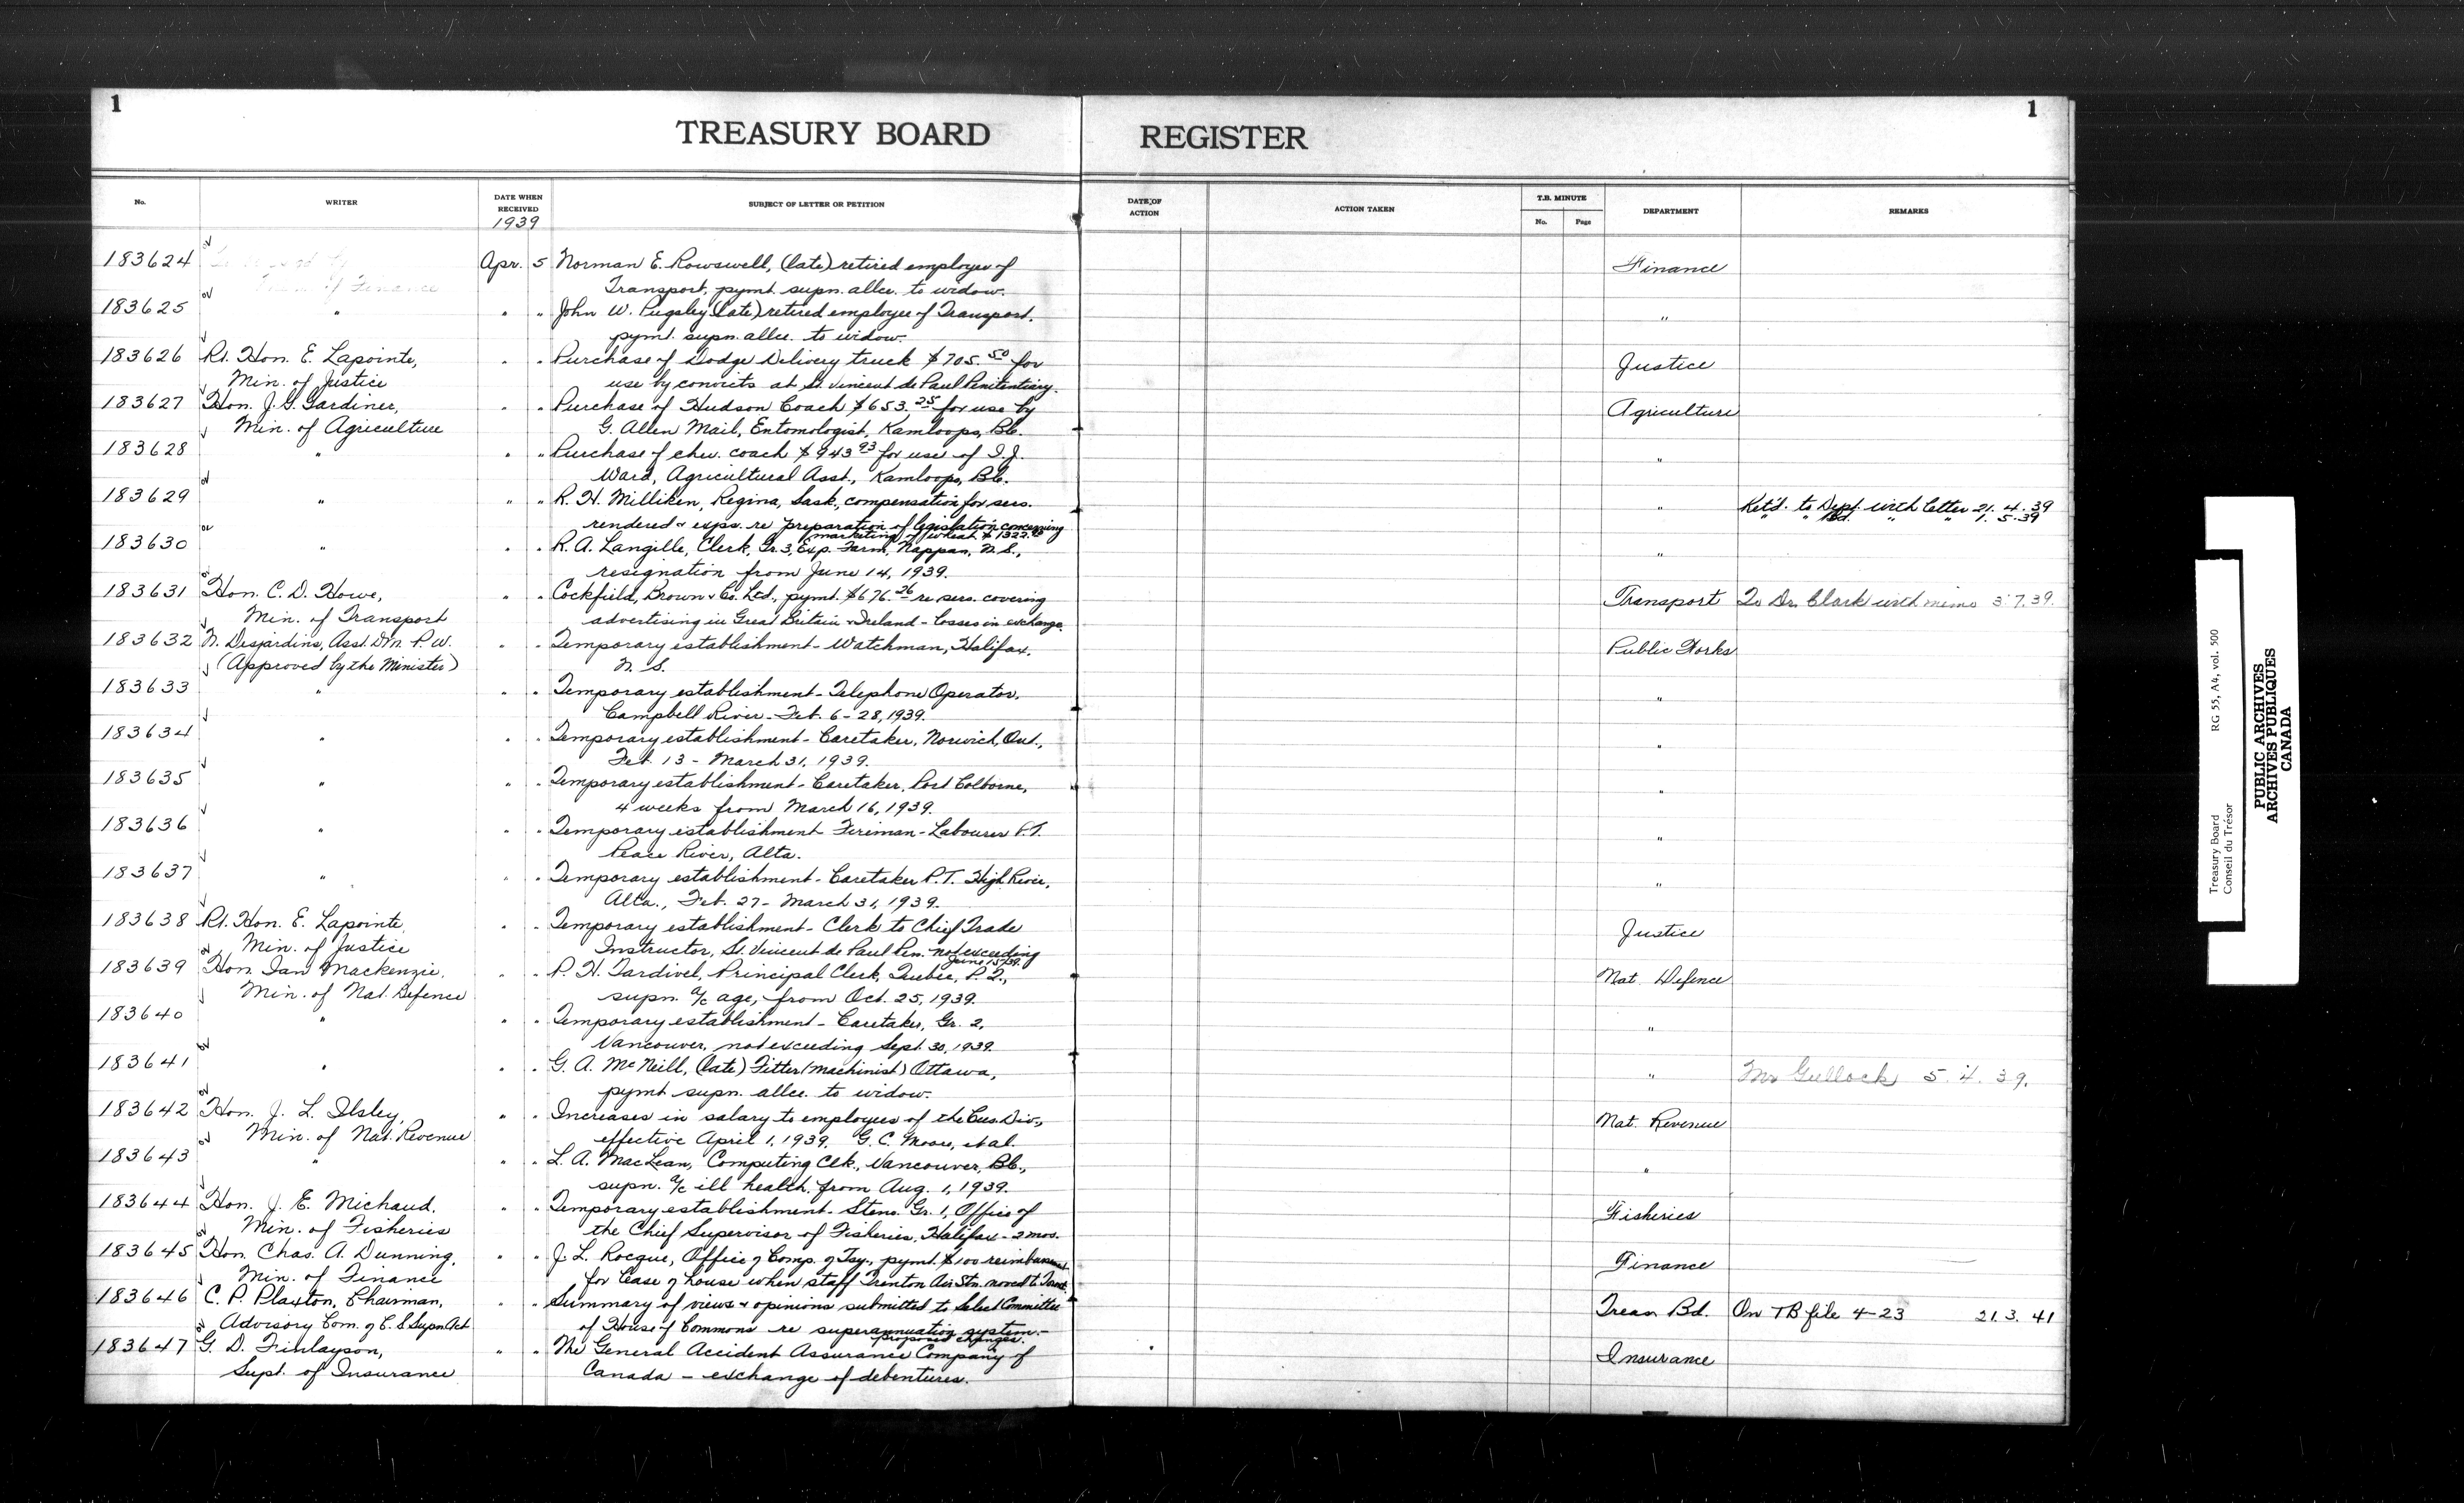 1
1
TREASURY BOARD REGISTER
No. WRITER DATE WHEN RECEIVED SUBJECT OF LETTER OR PETITION DATE OF ACTION ACTION TAKEN T.B. MINUTE No. Page DEPARTMENT REMARKS
1939
183624 of Finance Apr. 5 Norman E. Rowswell, (late) retired employee of Finance
Transport, pymt. supn. allce. to widow.
183625 " " " John W. Pugsley (late) retired employee of Transport, "
pymt. supn. allce. to widow.
183626 Rt. Hon. E. Lapointe, " " Purchase of Dodge Delivery truck $705.50 for Justice
Min. of Justice use by convicts at St. Vincent de Paul Penitentiary.
183627 Hon. J. G. Gardiner, " " Purchase of Hudson Coach $653.25 for use by Agriculture
Min. of Agriculture G. Allen Mail, Entomologist, Kamloops, B.C.
183628 " " " Purchase of chev. coach $943.93 for use of I. J. "
Ward, Agricultural Asst., Kamloops, B.C.
183629 " " " R. H. Milliken, Regina, Sask., compensation for sers. " Ret'd. to Dept. with letter 21. 4. 39
rendered & exps. re preparation of legislation concerning " " Bd. " " 1. 5. 39
marketing of wheat $1322.
183630 " " " R. A. Langille, Clerk, Gr. 3, Exp. Farm, Nappan, N.S., "
resignation from June 14, 1939.
183631 Hon. C. D. Howe, " " Cockfield, Brown & Co. Ltd., pymt. $676.26 re sers. covering Transport To Dr. Clark with memo 3.7.39.
Min. of Transport advertising in Great Britain & Ireland - losses in exchange.
183632 N. Desjardins, Asst. D.M. P.W. " " Temporary establishment - Watchman, Halifax, Public Works
(Approved by the Minister) N. S.
183633 " " " Temporary establishment - Telephone Operator, "
Campbell River - Feb. 6-28, 1939.
183634 " " " Temporary establishment - Caretaker, Norwich, Ont., "
Feb. 13 - March 31, 1939.
183635 " " " Temporary establishment - Caretaker, Port Colborne, "
4 weeks from March 16, 1939.
183636 " " " Temporary establishment Fireman-Labourer P.T. "
Peace River, Alta.
183637 " " " Temporary establishment - Caretaker P.T. High River, "
Alta., Feb. 27 - March 31, 1939.
183638 Rt. Hon. E. Lapointe, " " Temporary establishment - Clerk to Chief Trade Justice
Min. of Justice Instructor, St. Vincent de Paul Pen. not exceeding
June 15/39.
183639 Hon. Ian Mackenzie, " " P. H. Tardivel, Principal Clerk, Quebec, P. Q., Nat. Defence
Min. of Nat. Defence supn. a/c age, from Oct. 25, 1939.
183640 " " " Temporary establishment - Caretaker, Gr. 2, "
Vancouver, not exceeding Sept. 30, 1939.
183641 " " " G. A. McNeill, (late) Fitter (machinist) Ottawa, " Mr Gullock 5. 4. 39.
pymt supn. allce. to widow.
183642 Hon. J. L. Ilsley, " " Increases in salary to employees of the Cus. Div., Nat. Revenue
Min. of Nat. Revenue effective April 1, 1939. G. C. Moore, et al.
183643 " " " L. A. MacLean, Computing Clk., Vancouver, B.C., "
supn. a/c ill health, from Aug. 1, 1939.
183644 Hon. J. E. Michaud, " " Temporary establishment - Steno. Gr. 1, Office of Fisheries
Min. of Fisheries the Chief Supervisor of Fisheries, Halifax - 2 mos.
183645 Hon. Chas. A. Dunning, " " J. L. Rocque, Office of Comp. of Tsy., pymt. $100 reimbursement Finance
Min. of Finance for lease of house when staff Trenton Air Stn. moved to
183646 C. P. Plaxton, Chairman, " " Summary of views & opinions submitted to Select Committee Treas Bd. On TB file 4-23 21. 3. 41
Advisory Com. of C. S. Supn. Act of House of Commons re superannuation system -
proposed changes.
183647 G. D. Finlayson, " " The General Accident Assurance Company of Insurance
Supt. of Insurance Canada - exchange of debentures.
Treasury Board RG 55, A4, vol. 500
Conseil du Trésor
PUBLIC ARCHIVES
ARCHIVES PUBLIQUES
CANADA